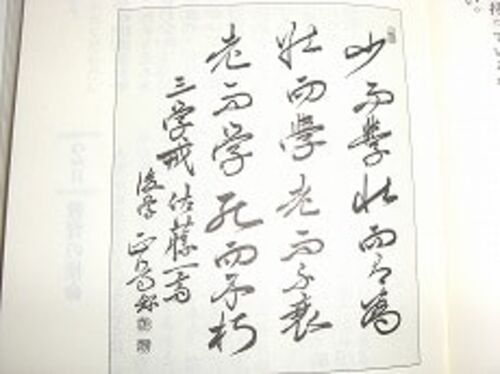 い。
少而學壮而有為
壮而學老而不衰
老而学死而不朽
三学戒 佐藤一斎
後学 正篤